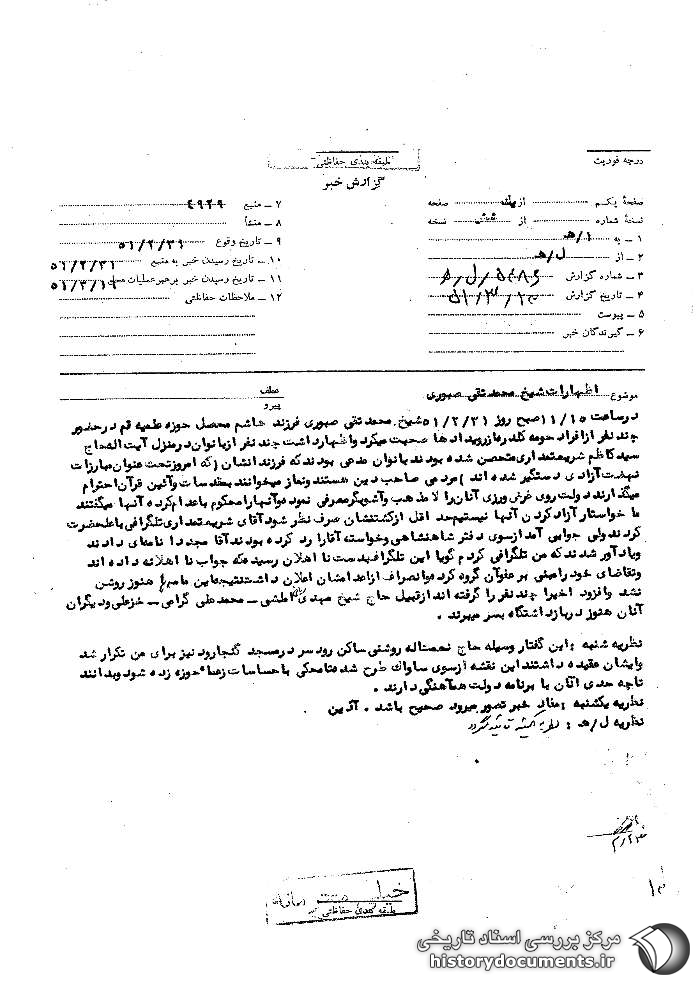 درجه فوریت
طبقه بندی حفاظتی
گزارش خبر
صفحهٔ یکم از یک صفحه
نسخهٔ شماره از شش نسخه
۱ – به ا/هـ
۲ – از ل/هـ
۳ – شماره گزارش
۴ – تاریخ گزارش ۵۱/۳/۱۰
۵ – پیوست
۶ – گیرندگان خبر
۷ – منبع ۴۹۲۹
۸ – منشأ
۹ – تاریخ وقوع ۵۱/۲/۳۱
۱۰ – تاریخ رسیدن خبر به منبع ۵۱/۲/۳۱
۱۱ – تاریخ رسیدن خبر برهبر عملیات
۱۲ – ملاحظات حفاظتی
موضوع اظهارات شیخ محمد تقی صبوری
عطف
پیرو
در ساعت ۱۱/۱۵ صبح روز ۵۱/۲/۳۱ شیخ محمد تقی صبوری فرزند هاشم محصل حوزه علمیه قم در حضور
چند نفر از افراد حومه کلدره از رویدادها صحبت میکرد و اظهار داشت چند نفر از بانوان در منزل آیت اله حاج
سید کاظم شریعتمداری متحصن شده بودند بانوان مدعی بودند که فرزندانشان (که امروز تحت عنوان مبارزات
نهضت آزادی دستگیر شده اند) مردمی صاحب دین هستند و نماز میخوانند بمقدسات و آئین قرآن احترام
میگذارند دولت روی غرض ورزی آنان را لا مذهب و آشوبگر معرفی نموده و آنها را محکوم باعدام کرده آنها میگفتند
ما خواستار آزاد کردن آنها نیستیم حد اقل از کشتنشان صرف نظر شود آقای شریعتمداری تلگرافی باعلیحضرت
کردند ولی جوابی آمد از سوی دفتر شاهنشاهی و خواسته آقا را رد کرده بودند آقا مجددا نامه ای دادند
و یاد آور شدند که من تلگرافی کردم گویا این تلگراف بدست نا اهلان رسیده که جواب نا اهلانه داده اند
و تقاضای خود را مبنی بر عفو آن گروه کرده و انصراف از اعدامشان اعلان داشت نتیجه این ماجرا هنوز روشن
نشد وافزود اخیرا چند نفر را گرفته اند از قبیل حاج شیخ مهدی املشی – محمد علی گرامی – خزعلی و دیگران
آنان هنوز در بازداشتگاه بسر میبرند .
نظریه شنبه : این گفتار وسیله حاج نعمت اله روشنی ساکن رودسر در مسجد گنجارود نیز برای من تکرار شد
وایشان عقیده داشتند این نقشه از سوی ساواک طرح شده تا محکی با حساسات زعماء حوزه زده شود و بدانند
تا چه حدی آنان با برنامه دولت هماهنگی دارند .
نظریه یکشنبه : مفاد خبر تصور میرود صحیح باشد . آذین
نظریه ل/هـ : نظریه یکشنبه تائید میگردد
خیلی محرمانه
طبقه بندی حفاظتی
مرکز بررسی اسناد تاریخی
historydocuments.ir